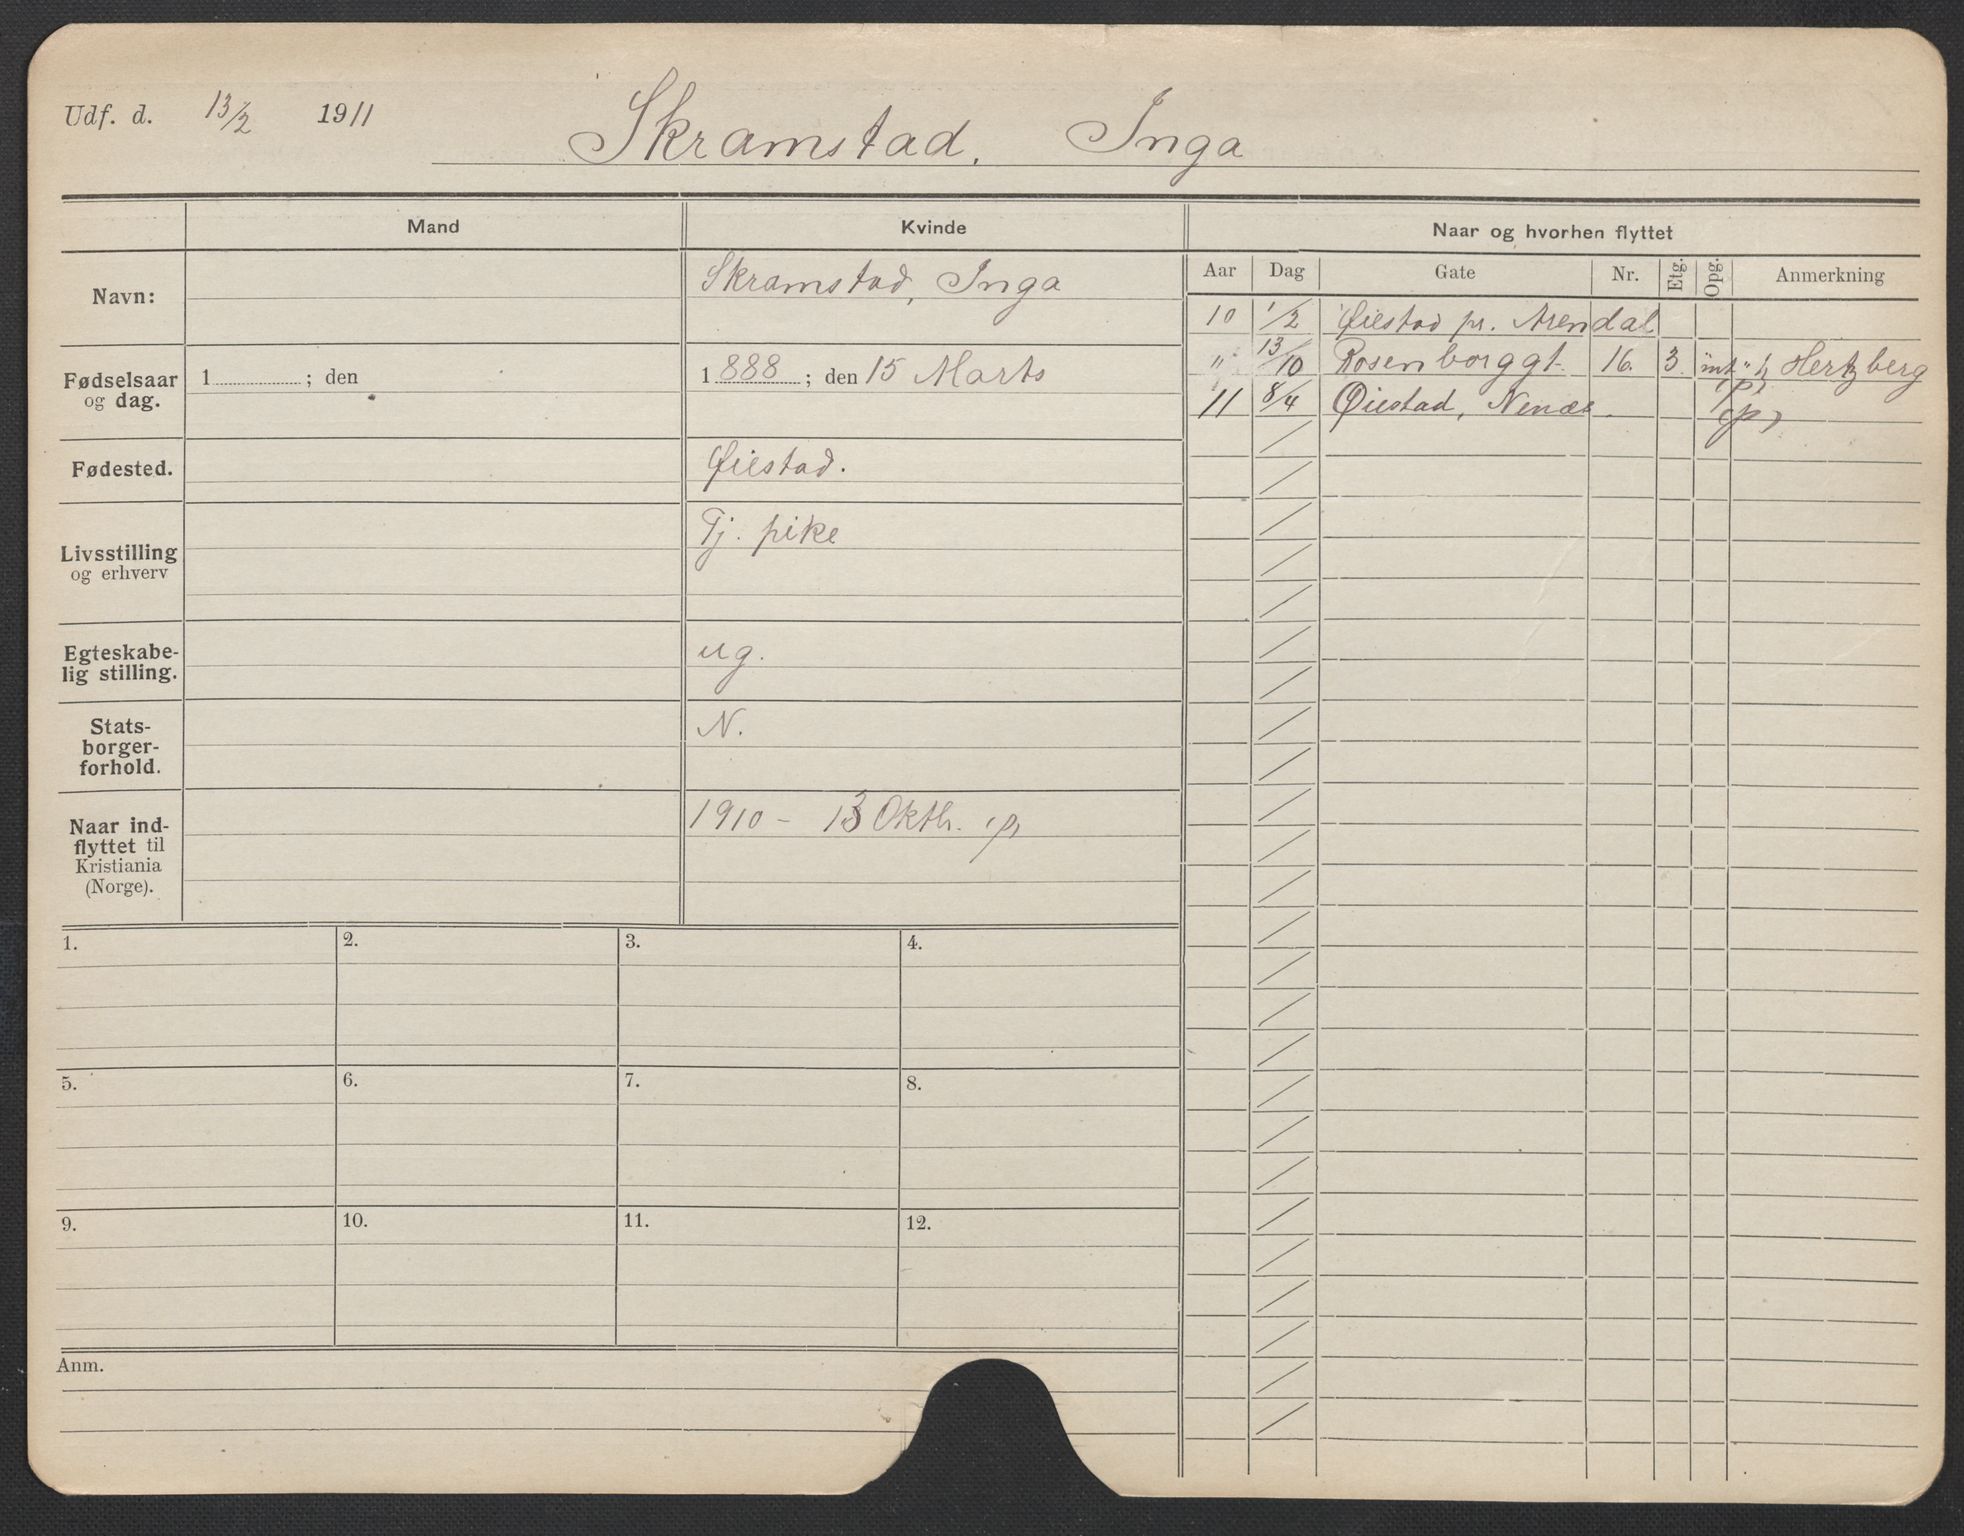 Udf. d. 13/2 1911
Skramstad, Inga
Mand
Kvinde
Naar og hvorhen flyttet
Navn:
Skramstad, Inga
Fødselsaar og dag.
1 ; den
1888; den 15 Marts
Fødested.
Øiestad.
Livsstilling og erhverv
Tj. pike
Egteskabe-
lig stilling.
ug.
Stats-
borger-
forhold.
N.
Naar ind-
flyttet til
Kristiania
(Norge).
1910 - 13 Oktbr. (p)
Aar Dag Gate Nr. Etg. Opg. Anmerkning
10 1/2 Øiestad pr. Arendal
" 13/10 Rosenborggt. 16. 3. Hertzberg
(p)
11 8/4 Øiestad, (p)
1. 2. 3. 4.
5. 6. 7. 8.
9. 10. 11. 12.
Anm.